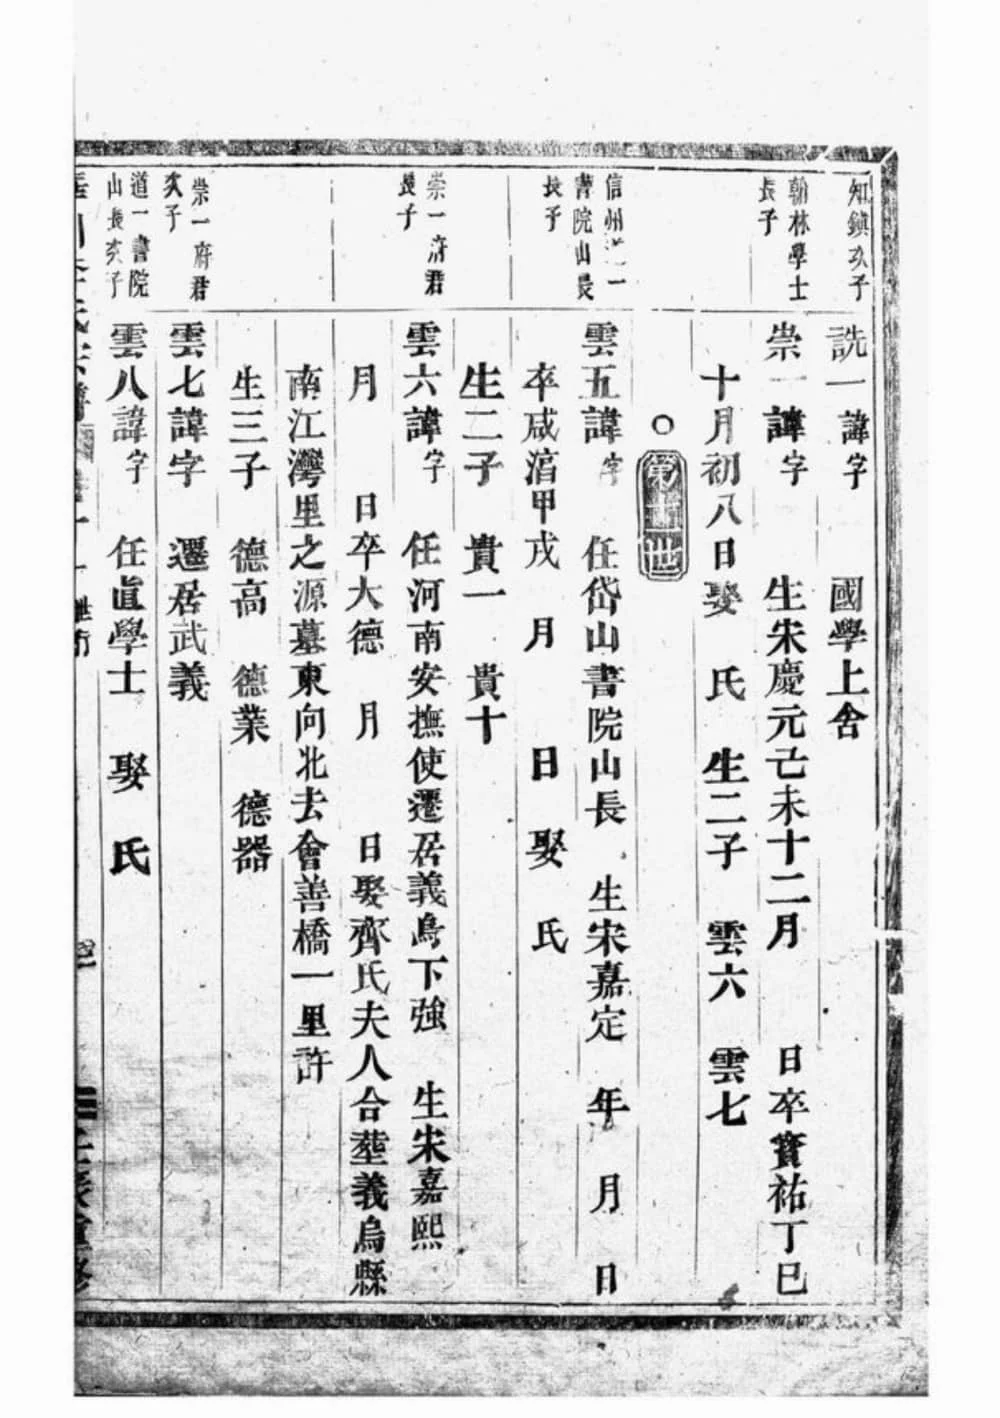 知鎮次子
詵一諱字 國學上舍
翰林學士
長子
崇一諱字 生宋慶元己未十二月 日卒寳祐丁巳
十月初八日娶 氏 生二子 雲六 雲七
○
第十一世
信州道一
書院山長
長子
雲五諱字 任岱山書院山長 生宋嘉定 年 月 日
卒咸淳甲戌 月 日娶 氏
生二子 貴一 貴十
崇一府君
長子
雲六諱字 任河南安撫使遷居義烏下強 生宋嘉熙
月 日卒大德 月 日娶齊氏夫人合塟義烏縣
南江灣里之源墓東向北去會善橋一里許
生三子 德高 德業 德器
崇一府君
次子
雲七諱字 遷居武義
道一書院
山長次子
雲八諱字 任眞學士 娶 氏